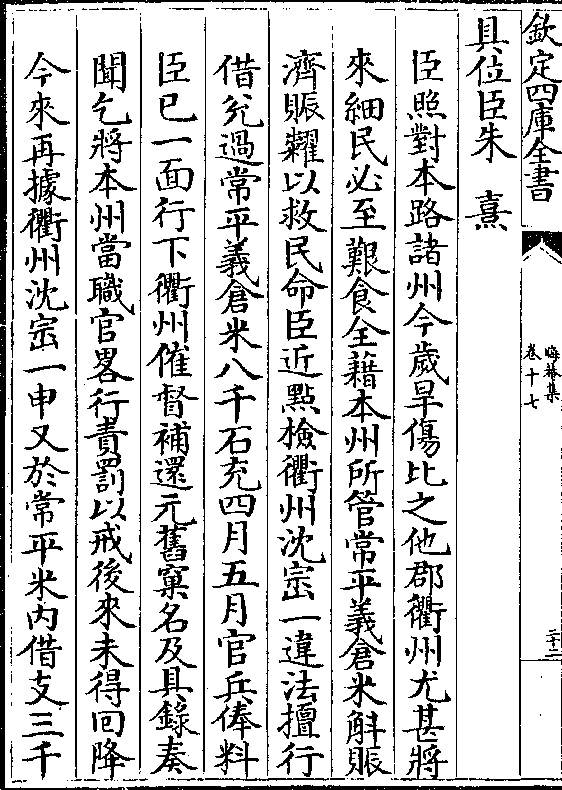 欽定四庫全書
晦菴集
卷十七
三十二
具位臣朱　熹
臣照對本路諸州今歲旱傷比之他郡衢州尤甚將
來細民必至艱食全藉本州所管常平義倉米斛賑
濟賑糶以救民命臣近點檢衢州沈崈一違法擅行
借兊過常平義倉米八千石充四月五月官兵俸料
臣已一面行下衢州催督補還元舊窠名及具錄奏
聞乞將本州當職官畧行責罰以戒後來未得回降
今來再據衢州沈崈一申又於常平米内借支三千